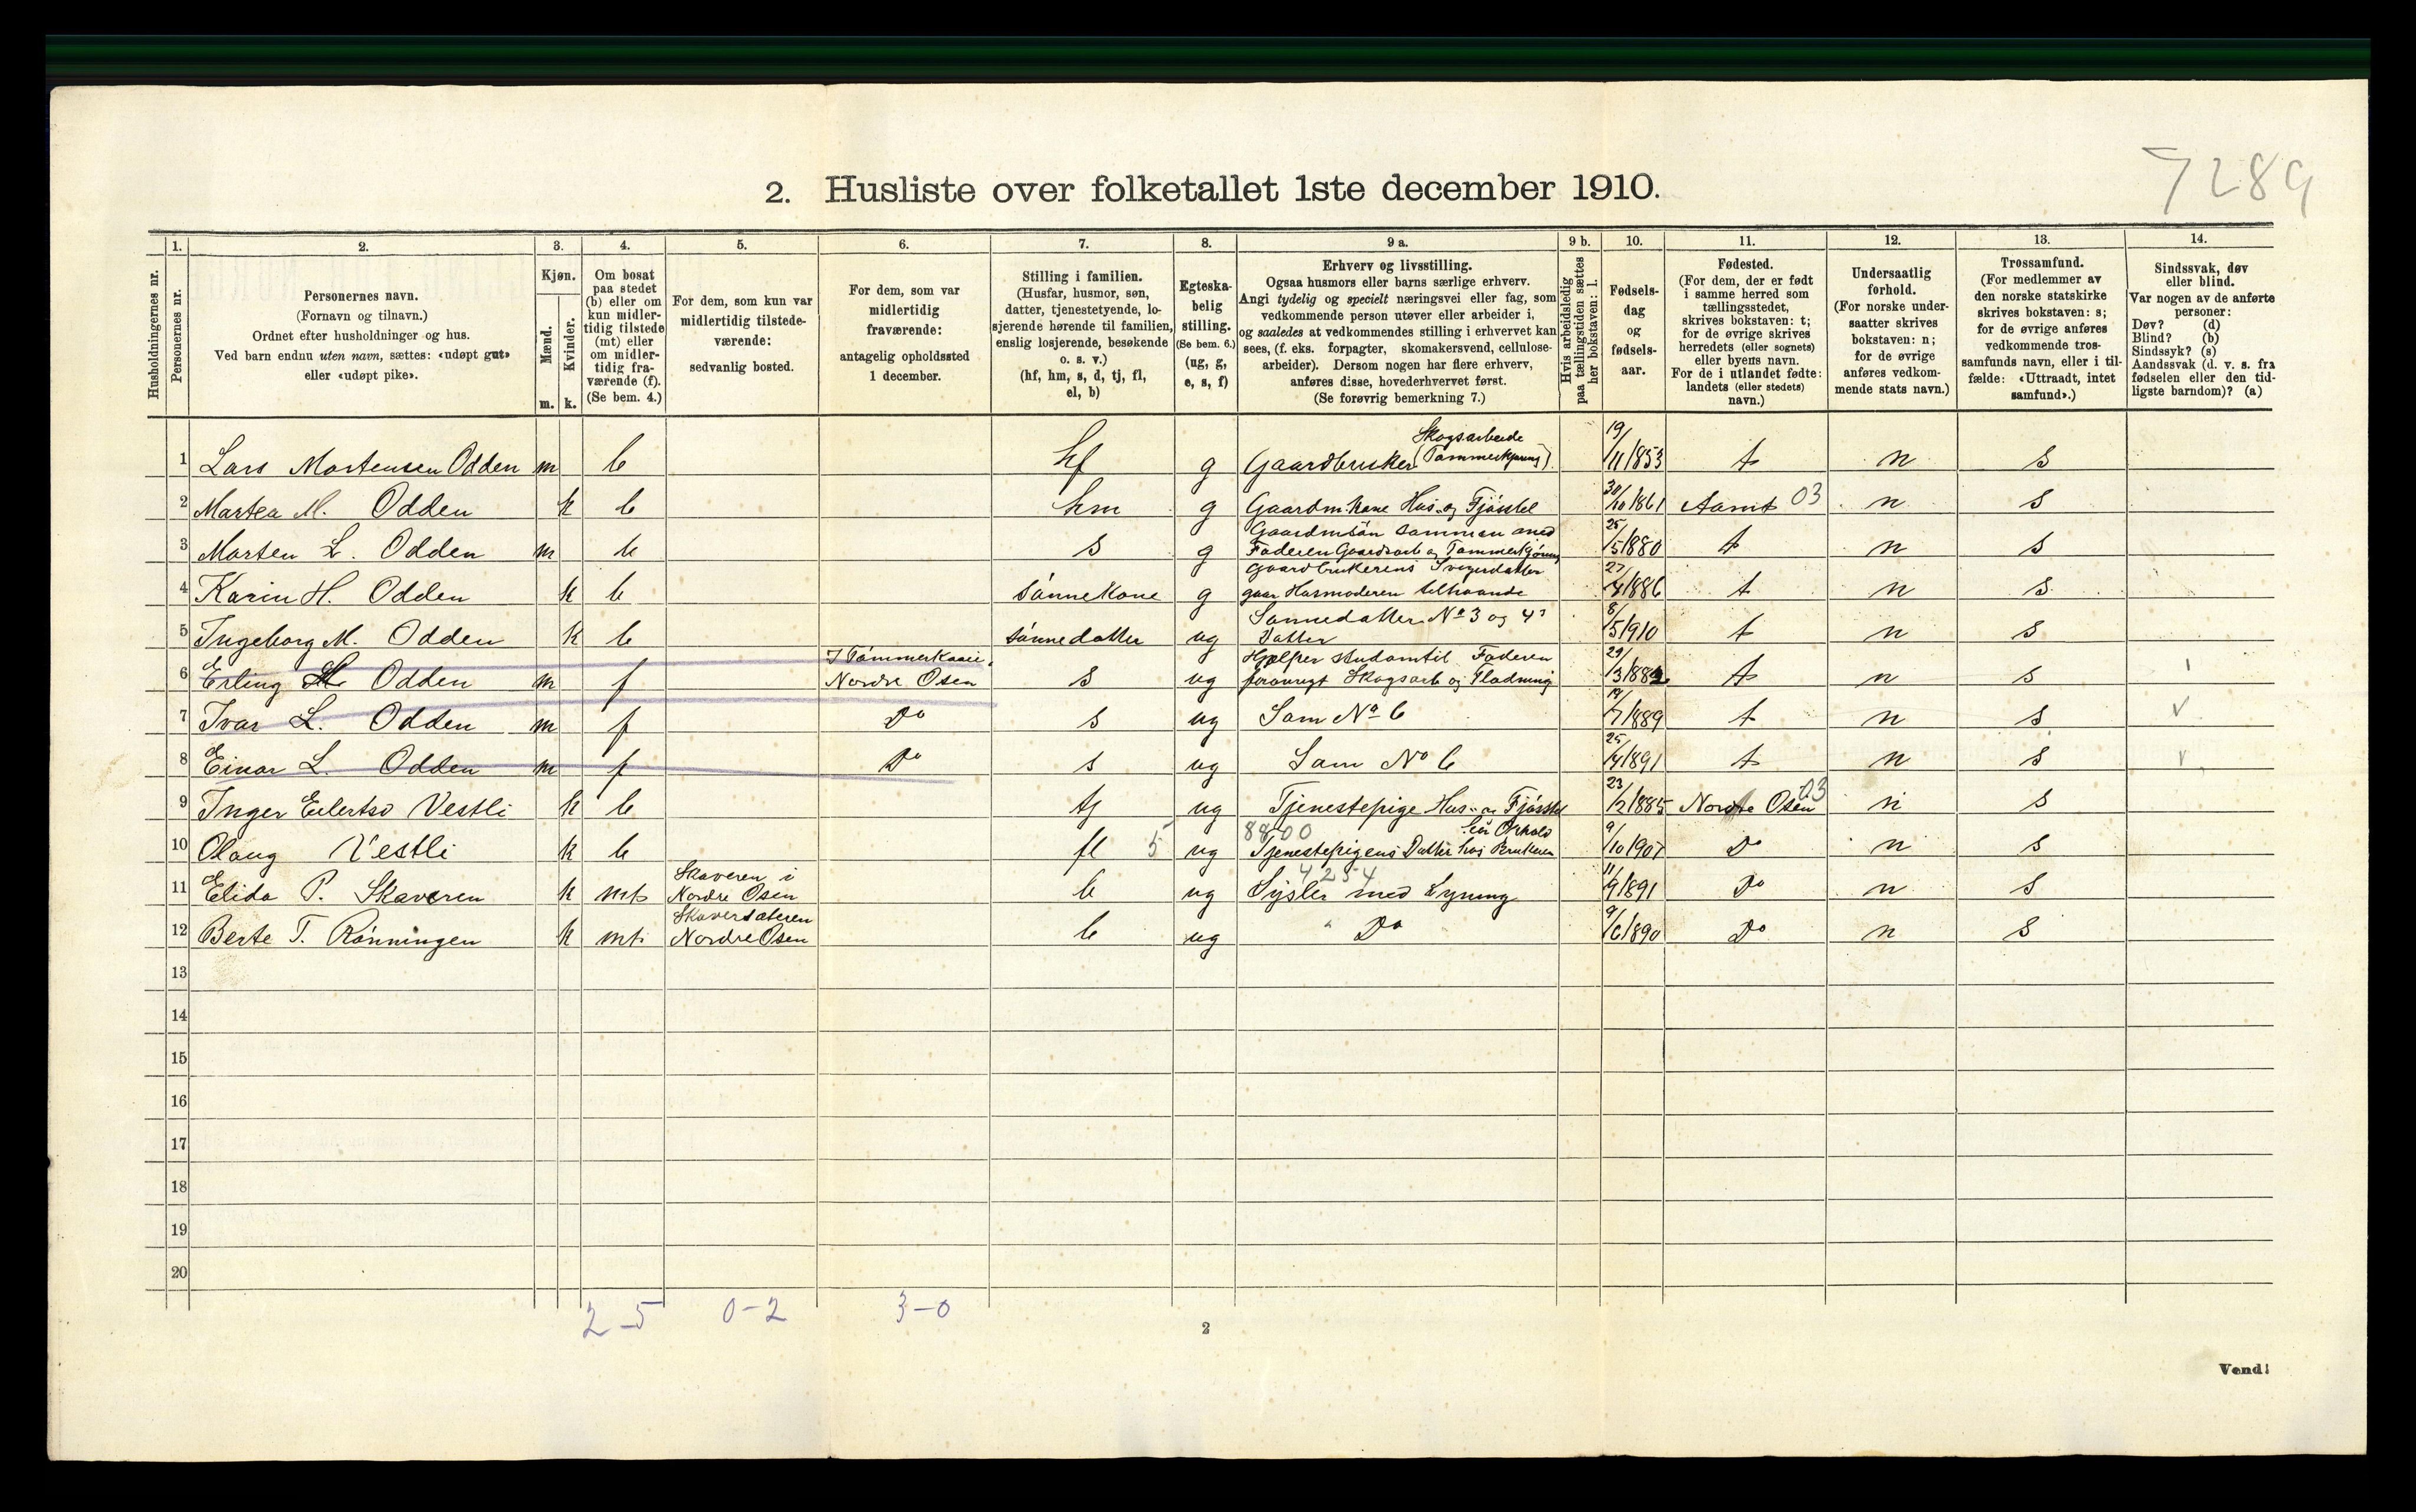 7289
2. Husliste over folketallet 1ste december 1910.
Husholdningernes nr.
1.
Personernes nr.
2.
Personernes navn.
(Fornavn og tilnavn.)
Ordnet efter husholdninger og hus.
Ved barn endnu uten navn, sættes: «udøpt gut»
eller «udøpt pike».
3.
Kjøn.
Mænd.
Kvinder.
m. k.
4.
Om bosat
paa stedet
(b) eller om
kun midler-
tidig tilstede
(mt) eller
om midler-
tidig fra-
værende (f).
(Se bem. 4.)
5.
For dem, som kun var
midlertidig tilstede-
værende:
sedvanlig bosted.
6.
For dem, som var
midlertidig
fraværende:
antagelig opholdssted
1 december.
7.
Stilling i familien.
(Husfar, husmor, søn,
datter, tjenestetyende, lo-
sjerende hørende til familien,
enslig losjerende, besøkende
o. s. v.)
(hf, hm, s, d, tj, fl,
el, b)
8.
Egteska-
belig
stilling.
(Se bem. 6.)
(ug, g,
e, s, f)
9 a.
Erhverv og livsstilling.
Ogsaa husmors eller barns særlige erhverv.
Angi tydelig og specielt næringsvei eller fag, som
vedkommende person utøver eller arbeider i,
og saaledes at vedkommendes stilling i erhvervet kan
sees, (f. eks. forpagter, skomakersvend, cellulose-
arbeider). Dersom nogen har flere erhverv,
anføres disse, hovederhvervet først.
(Se forøvrig bemerkning 7.)
9 b.
Hvis arbeidsledig
paa tællingstiden sættes
her bokstaven: l.
10.
Fødsels-
dag
og
fødsels-
aar.
11.
Fødested.
(For dem, der er født
i samme herred som
tællingsstedet,
skrives bokstaven: t;
for de øvrige skrives
herredets (eller sognets)
eller byens navn.
For de i utlandet fødte:
landets (eller stedets)
navn.)
12.
Undersaatlig
forhold.
(For norske under-
saatter skrives
bokstaven: n;
for de øvrige
anføres vedkom-
mende stats navn.)
13.
Trossamfund.
(For medlemmer av
den norske statskirke
skrives bokstaven: s;
for de øvrige anføres
vedkommende tros-
samfunds navn, eller i til-
fælde: «Uttraadt, intet
samfund».)
14.
Sindssvak, døv
eller blind.
Var nogen av de anførte
personer:
Døv? (d)
Blind? (b)
Sindssyk? (s)
Aandssvak (d. v. s. fra
fødselen eller den tid-
ligste barndom)? (a)
1 Lars Mortensen Odden m b hf g Gaardbruker Skogsarbeide (Tømmerkjøring) 19/11 1853 t n s
2 Martea M. Odden k b hm g Gaardm. kone Hus- og Fjøsstel 30/10 1861 Aamot 03 n s
3 Morten L. Odden m b s g Gaardmsøn sammen med
Faderen Gaardsarb og Tømmerkjøring 25/5 1880 t n s
4 Karin H. Odden k b Sønnekone g Gaardbrukerens Svigerdatter
gaar Husmoderen tilhaande 27/4 1886 t n s
5 Ingeborg M. Odden k b sønnedatter ug Sønnedatter No 3 og 4s
Datter 8/5 1910 t n s
6 Erling Odden m f I Tømmerkoaie
Nordre Osen s ug Hjelper stundomtil Faderen
forøvrigt Skogsarb og Flødning 29/3 1882 t n s
7 Ivar L. Odden m f Do s ug Som No 6 19/7 1889 t n s v
8 Einar L. Odden m f Do s ug Som No 6 25/4 1891 t n s v
9 Inger Eilertsd Vestli k b tj ug Tjenestepige Hus- og Fjøsstel 23/2 1885 Nordre Osen 03 n s
10 Olaug Vestli k b fl 5 ug 8800
Tjenestepigens Datter hos Brukeren 9/10 1907 Do n s
11 Elida P. Skaveren k mt Skaveren i
Nordre Osen b ug 4254
Sysler med Syning 11/9 1891 Do n s
12 Berte T. Rønningen k mt Skaversæteren
Nordre Osen b ug Do 9/6 1890 Do n s
13
14
15
16
17
18
19
20
2-5 0-2 3-0
2
Vend!